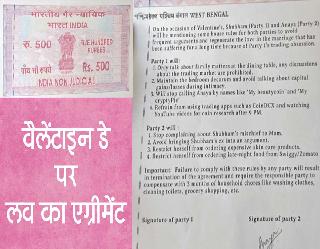 भारतीय गैर न्यायिक
भारत INDIA
रु. 500
FIVE HUNDRED
RUPEES
पाँच सौ रुपये
Rs. 500
INDIA NON JUDICIAL
वैलेंटाइन डे
पर
लव का एग्रीमेंट
পশ্চিমবঙ্গ पश्चिम बंगाल WEST BENGAL
On the occasion of Valentine's, Shubham (Party 1) and Anaya (Party 2)
will be mentioning some house rules for both parties to avoid
frequent arguments and regenerate the love in the marriage that has
been suffering for a long time because of Party 1's trading obsession.
Party 1 will:
1. Only talk about family matters at the dining table, any discussions
about the trading market are prohibited.
2. Maintain the bedroom decorum and avoid talking about capital
gains/losses during intimacy.
3. Will stop calling Anaya by names like 'My beautycoin' and 'My
cryptpie'
4. Refrain from using trading apps such as CoinDCX and watching
YouTube videos for coin research after 9 PM.
Party 2 will :
1. Stop complaining about Shubham's mischief to Mom.
2. Avoid bringing Shubham's ex into an argument.
3. Restrict herself from ordering expensive skin care products.
4. Restrict herself from ordering late-night food from Swiggy/Zomato
Important: Failure to comply with these rules by any party will result
in termination of the agreement and require the responsible party to
compensate with 3 months of household chores like washing clothes,
cleaning toilets, grocery shopping, etc.
Signature of party 1
Signature of party 2